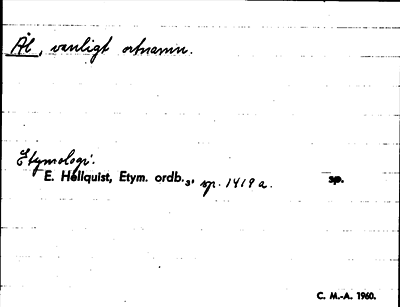 Ål, vanligt ortnamn.
Etymologi.
E. Hellquist, Etym. ordb.3, sp. 1419 a. sp.
C. M.-A. 1960.